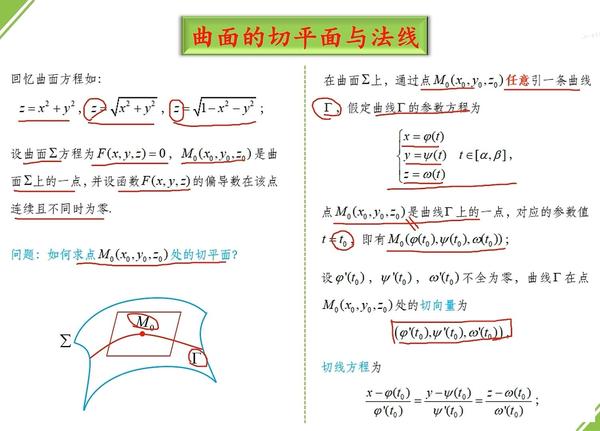 曲面的切平面与法线
回忆曲面方程如:
z=x²+y², z=√(x²+y²), z=√(1-x²-y²);
设曲面Σ方程为F(x,y,z)=0, M₀(x₀,y₀,z₀)是曲
面Σ上的一点, 并设函数F(x,y,z)的偏导数在该点
连续且不同时为零.
问题: 如何求点M₀(x₀,y₀,z₀)处的切平面?
Σ
M₀
Γ
在曲面Σ上, 通过点M₀(x₀,y₀,z₀)任意引一条曲线
Γ, 假定曲线Γ的参数方程为
x=φ(t)
y=ψ(t) t∈[α,β],
z=ω(t)
点M₀(x₀,y₀,z₀)是曲线Γ上的一点, 对应的参数值
t=t₀, 即有M₀(φ(t₀),ψ(t₀),ω(t₀));
设φ'(t₀), ψ'(t₀), ω'(t₀)不全为零, 曲线Γ在点
M₀(x₀,y₀,z₀)处的切向量为
(φ'(t₀),ψ'(t₀),ω'(t₀)),
切线方程为
(x-φ(t₀))/φ'(t₀)=(y-ψ(t₀))/ψ'(t₀)=(z-ω(t₀))/ω'(t₀);